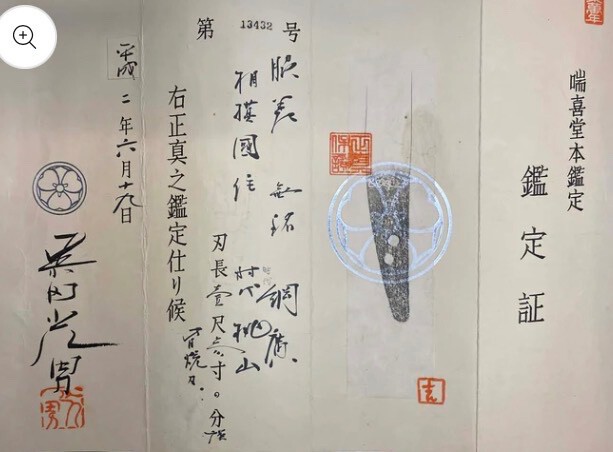 喘喜堂本鑑定
鑑定証
第 13432 号
脇差 無銘 綱廣
相模國住 時代桃山
刃長壹尺六寸〇分
皆焼刃
右正真之鑑定仕り候
平成二年六月十九日